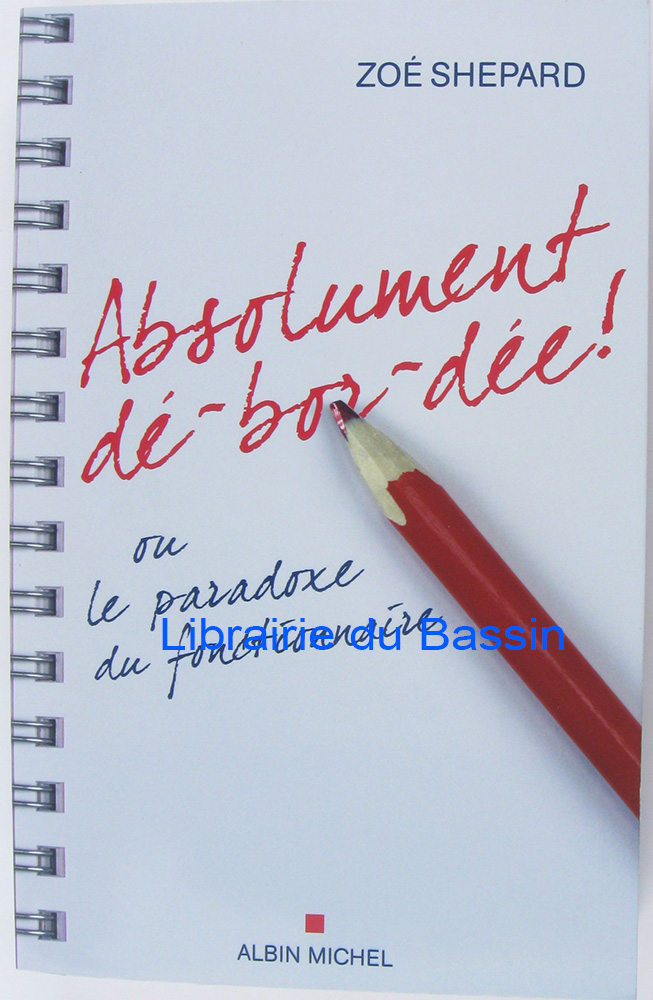 ZOÉ SHEPARD
Absolument
dé-bor-dée!
ou
le paradoxe
du fonctionnaire
Librairie du Bassin
ALBIN MICHEL